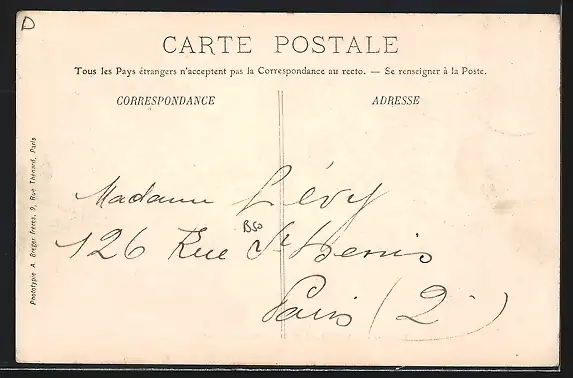 D
CARTE POSTALE
Tous les Pays étrangers n'acceptent pas la Correspondance au recto. — Se renseigner à la Poste.
CORRESPONDANCE
ADRESSE
Phototypie A. Breger frères, 9, Rue Thénard, Paris
Madame Lévy
B50
126 Rue St Denis
Paris (2e)